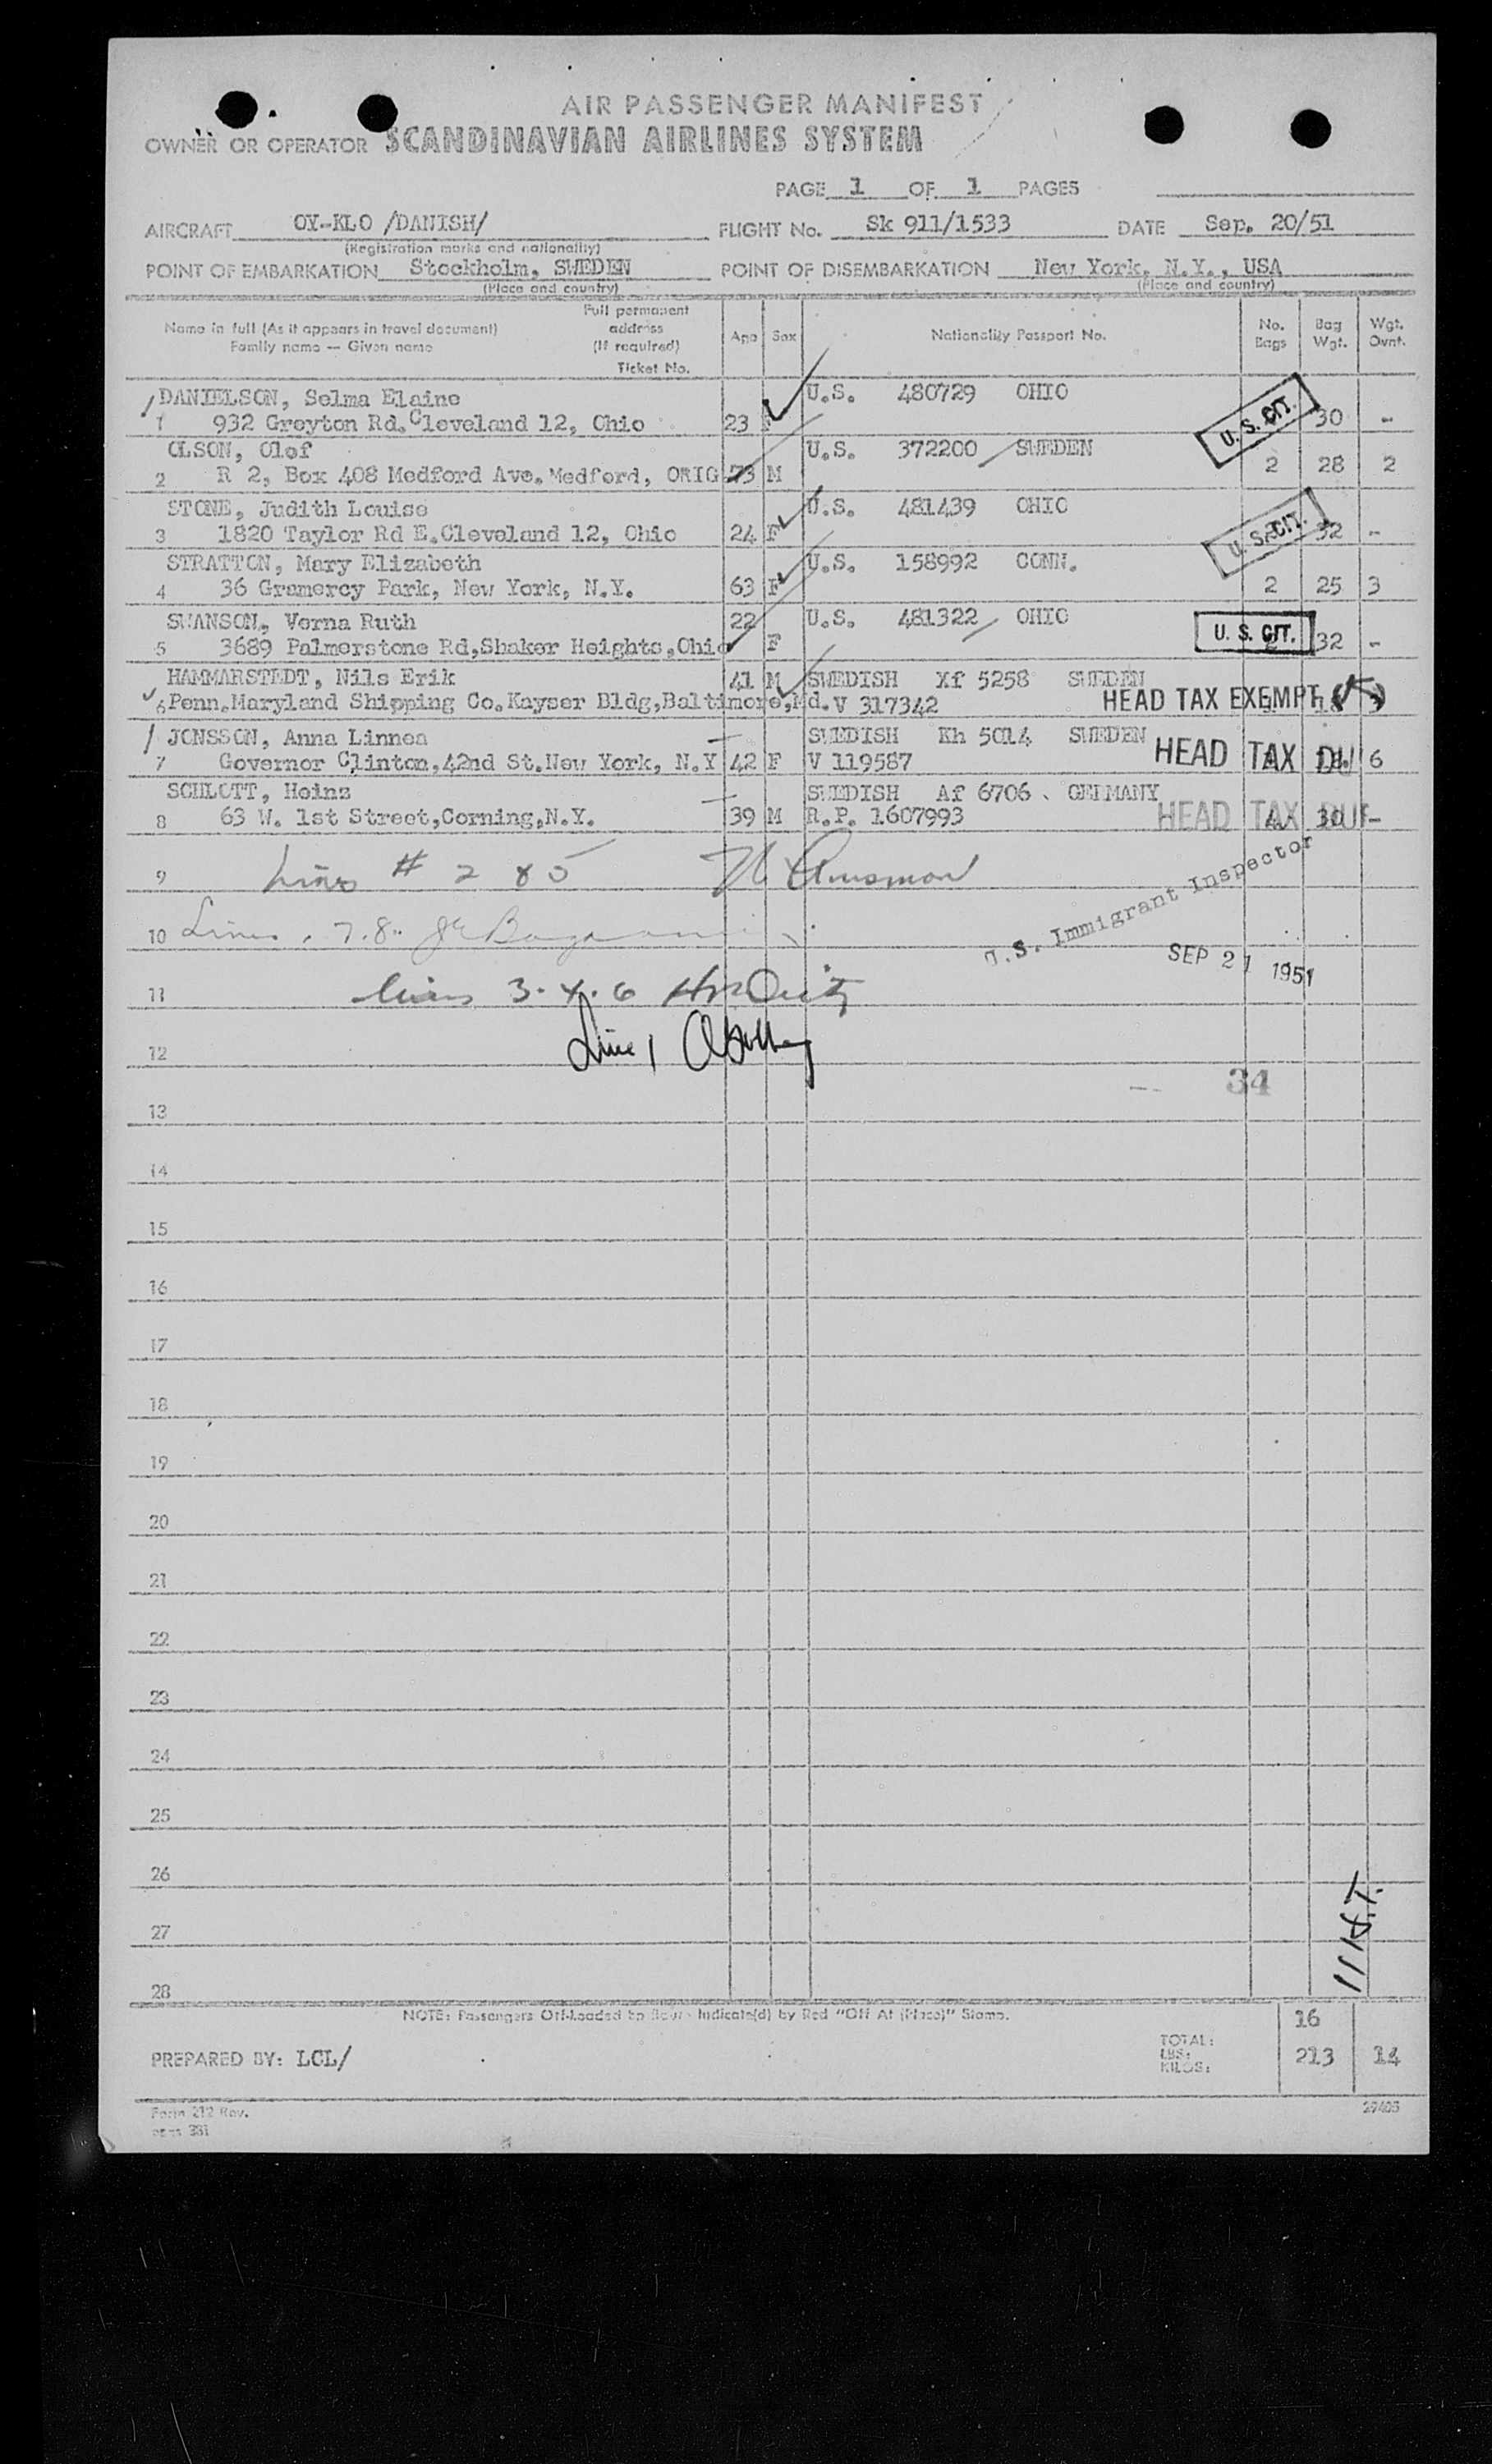 AIR PASSENGER MANIFEST
OWNER OR OPERATOR SCANDINAVIAN AIRLINES SYSTEM
PAGE 1 OF 1 PAGES
AIRCRAFT OY-KLO /DANISH/ FLIGHT No. Sk 911/1533 DATE Sep. 20/51
(Registration marks and nationality)
POINT OF EMBARKATION Stockholm, SWEDEN POINT OF DISEMBARKATION New York, N.Y., USA
(Place and country) (Place and country)
Name in full (As it appears in travel document) Family name — Given name Full permanent address (If required) Ticket No. Age Sex Nationality Passport No. No. Bags Bag Wgt. Wgt. Ovnt.
DANIELSON, Selma Elaine U.S. 480729 OHIO U. S. CIT.
1 932 Greyton Rd. Cleveland 12, Ohio 23 F 30 -
OLSON, Olof U.S. 372200 SWEDEN
2 R 2, Box 408 Medford Ave. Medford, ORIG 73 M 2 28 2
STONE, Judith Louise U.S. 481439 OHIO U. S. CIT.
3 1820 Taylor Rd E.Cleveland 12, Ohio 24 F 32 -
STRATTON, Mary Elizabeth U.S. 158992 CONN.
4 36 Gramercy Park, New York, N.Y. 63 F 2 25 3
SWANSON, Verna Ruth 22 U.S. 481322 OHIO U. S. CIT.
5 3689 Palmerstone Rd,Shaker Heights,Ohio F 2 32 -
HAMMARSTEDT, Nils Erik 41 M SWEDISH Xf 5258 SWEDEN
6 Penn.Maryland Shipping Co.Kayser Bldg,Baltimore,Md. V 317342 HEAD TAX EXEMPT
JONSSON, Anna Linnea SWEDISH Kh 5014 SWEDEN
7 Governor Clinton,42nd St.New York, N.Y 42 F V 119587 HEAD TAX DU 6
SCHLOTT, Heinz SWEDISH Af 6706 GERMANY
8 63 W. 1st Street,Corning,N.Y. 39 M R.P. 1607993 HEAD TAX DUE -
9 Lines # 2 & 5
10 Lines 7.8.
U.S. Immigrant Inspector
SEP 21 1951
11 lines 3. 4. 6
12 Line 1
34
13
14
15
16
17
18
19
20
21
22
23
24
25
26
27
28
NOTE: Passengers Off-Loaded En Route Indicate(d) by Red "Off At (Place)" Stamp.
16
PREPARED BY: LCL/ TOTAL: LBS: KILOS: 213 14
Form 212 Rev.
29405